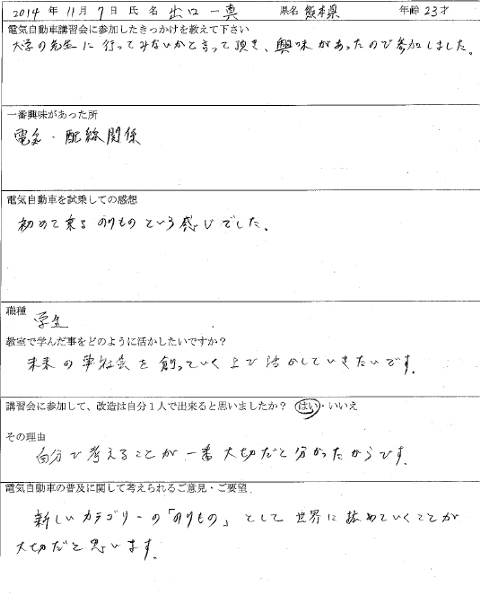 2014 年 11月 7日 氏 名 出口 一真 県名 熊本県 年齢 23才
電気自動車講習会に参加したきっかけを教えて下さい
大学の先生に行ってみないかと言って頂き、興味があったので参加しました。
一番興味があった所
電気・配線関係
電気自動車を試乗しての感想
初めて乗るのりものという感じでした。
職種
学生
教室で学んだ事をどのように活かしたいですか?
未来の車社会を創っていく上で活かしていきたいです。
講習会に参加して、改造は自分1人で出来ると思いましたか? はい・いいえ
その理由
自分で考えることが一番大切だと分かったからです。
電気自動車の普及に関して考えられるご意見・ご要望
新しいカテゴリーの「のりもの」として世界に広めていくことが
大切だと思います。